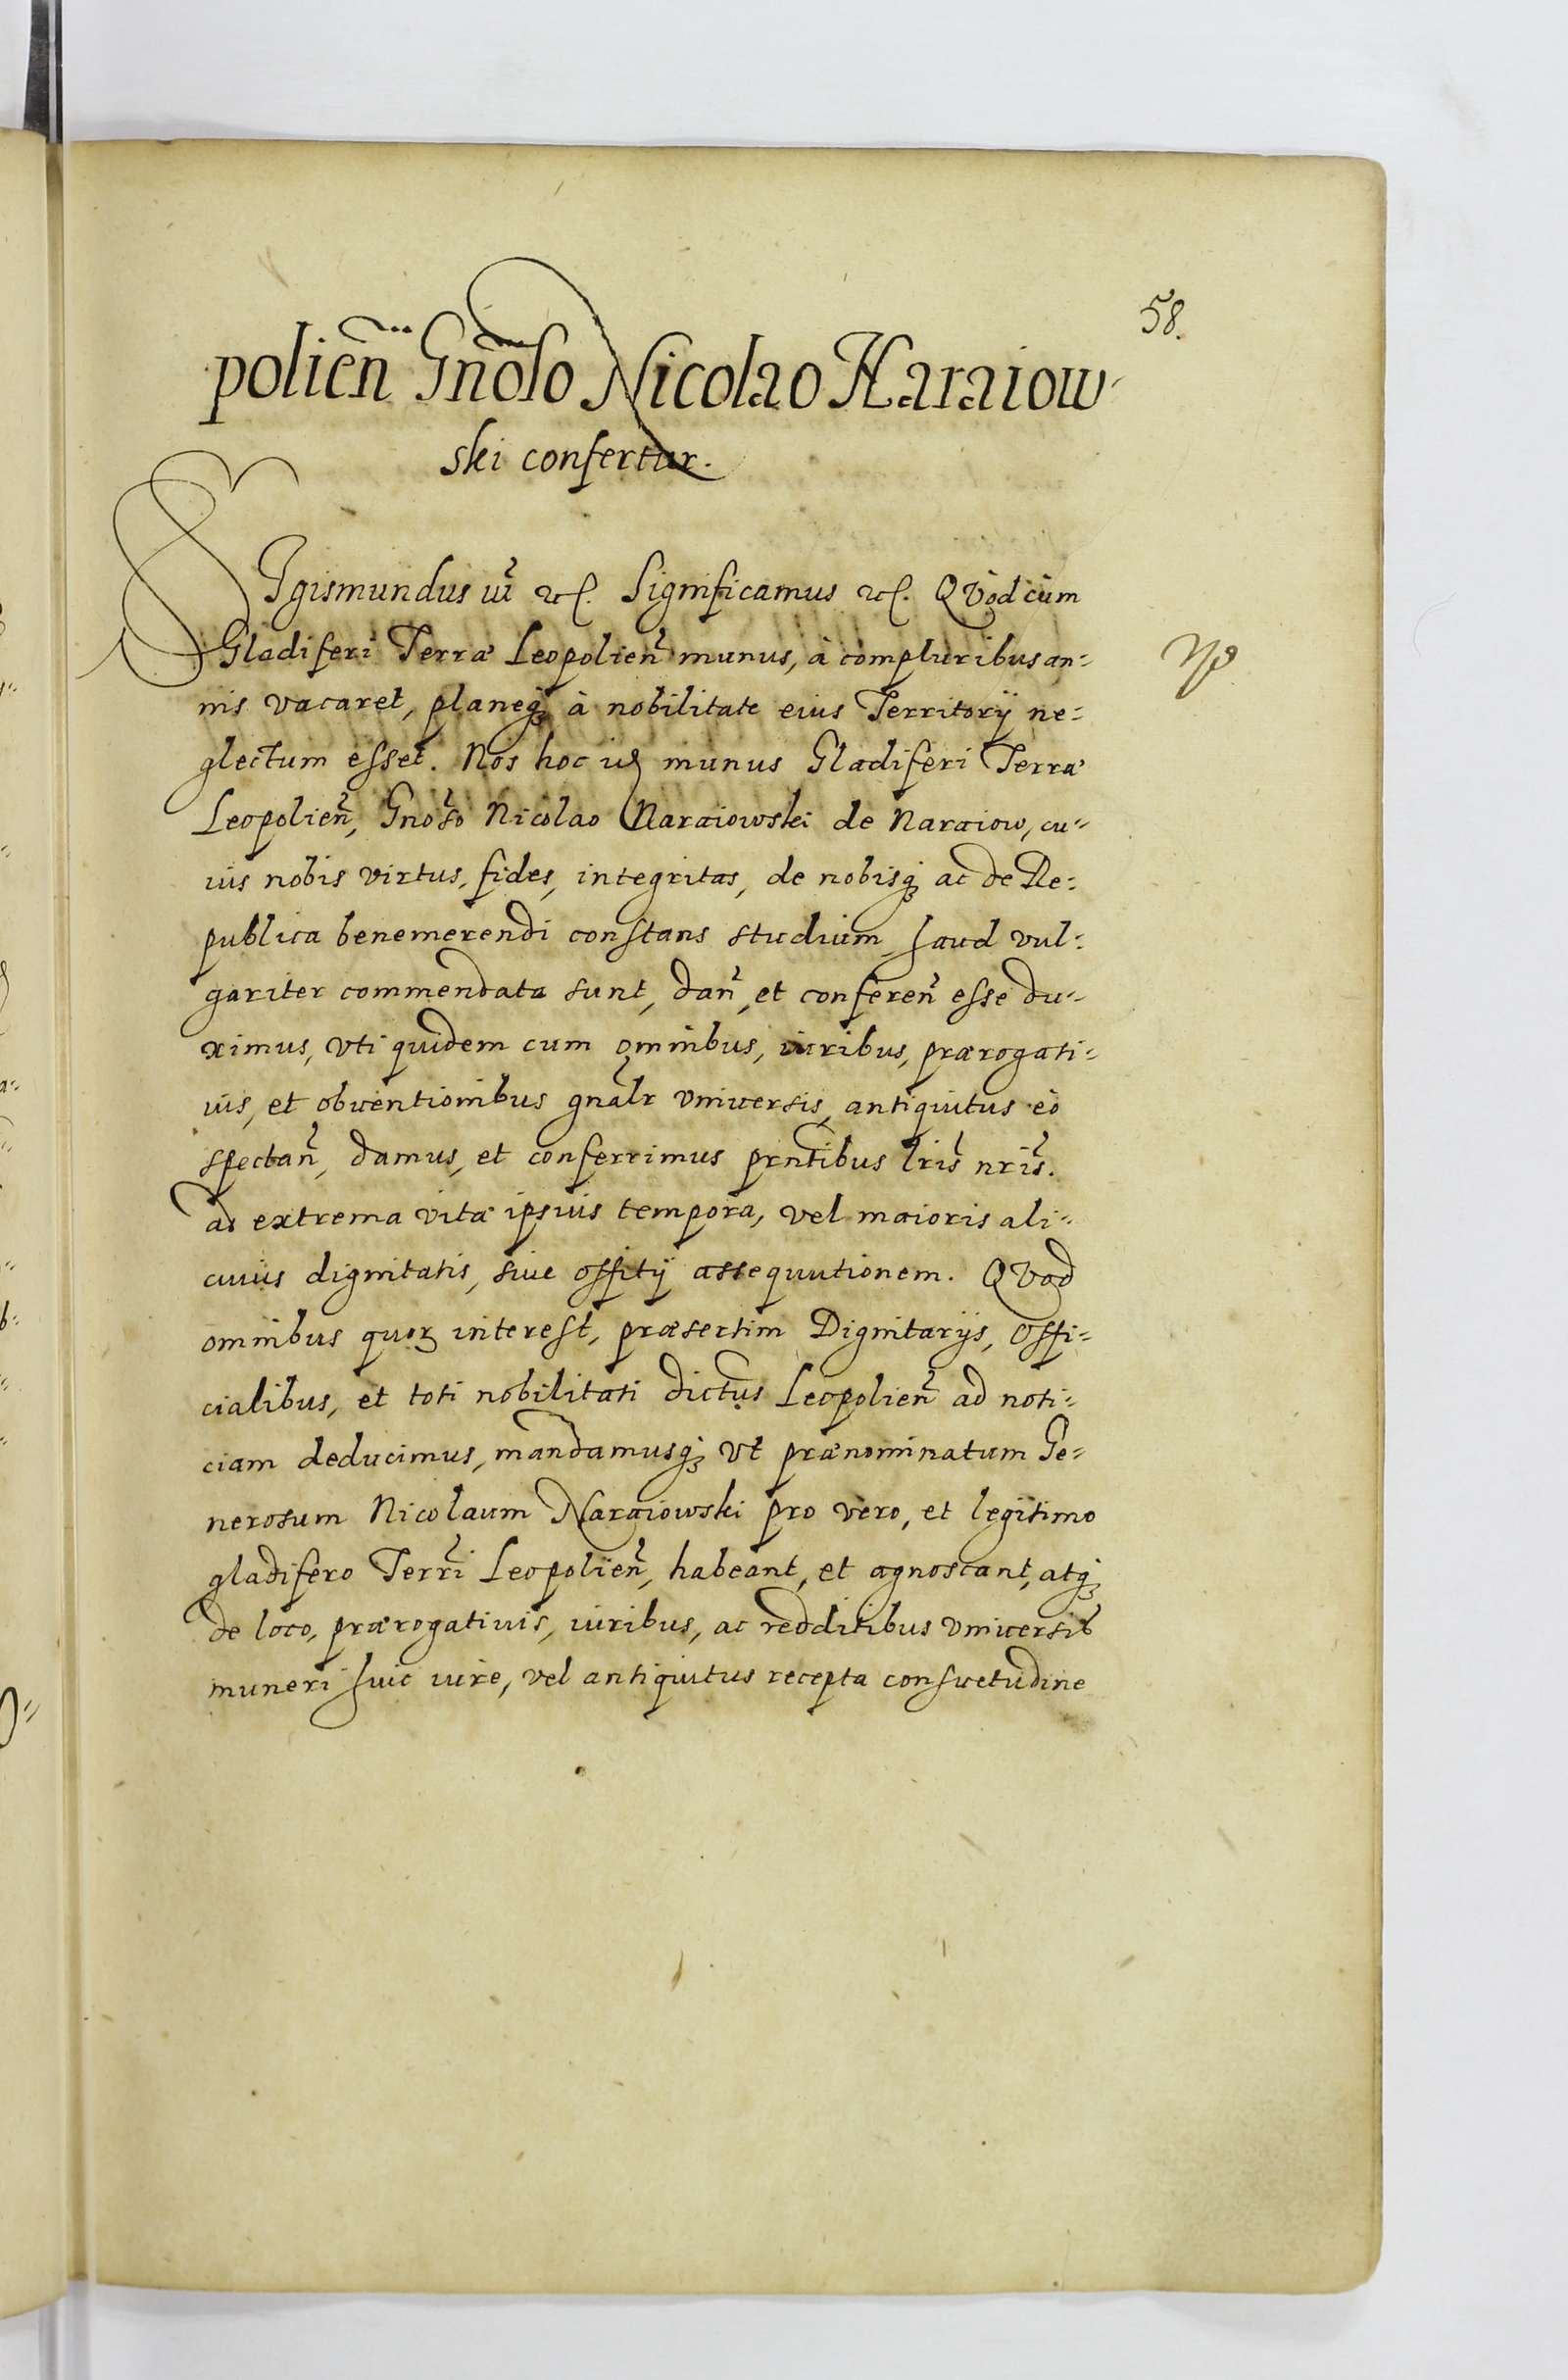 58.
polień Gnoso Nicolao Naraiow-
ski confertur.
SIgismundus iii etc. Significamus etc. QVòd cùm
Gladiferi Terræ Leopolień munus, à compluribus an=
nis vacaret, planeq; à nobilitate eius Territorij ne=
glectum esset. Nos hoc munus Gladiferi Terræ
Leopolień, Gnoso Nicolao Naraiowski de Naraiow, cu=
ius nobis virtus, fides, integritas, de nobisq; ac de Re=
publica benemerendi constans studium haud vul=
gariter commendata sunt, dań, et confereń esse du=
ximus, vti quidem cum omnibus, iuribus, prærogati=
uis, et obuentionibus gnalr vniuersis, antiquitus eò
spectań, damus, et conferrimus prntibus lris nris.
ad extrema vitæ ipsius tempora, vel maioris ali=
cuius dignitatis, siue offitij assequutionem. QVod
omnibus quor interest, præsertim Dignitarijs, Offi=
cialibus, et toti nobilitati dictus Leopolień ad noti=
ciam deducimus, mandamusq; vt prænominatum Ge=
nerosum Nicolaum Naraiowski pro vero, et legitimo
gladifero Terri Leopolień, habeant, et agnoscant, atq;
de loco, prærogatiuis, iuribus, ac redditibus vniuersis
muneri huic iure, vel antiquitus recepta consuetudine